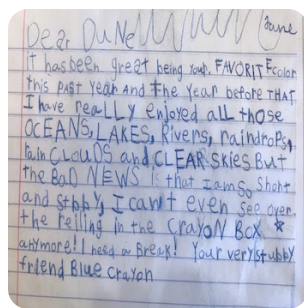 June
Dear DuNe
it has been great being your FAVORITE color
this PAST year AND the year before THAT
I have really enjoyed all those
OCEANS, LAKES, Rivers, raindrops,
rain CLOUDS and CLEAR skies But
the BaD NEWS is that I am so short
and stubby, I can't even see over
the reiling in the CRAYON BOX
anymore! I need a Break! Your very stubby
friend Blue Crayon